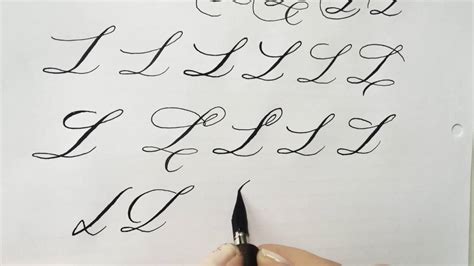 L L
L L L L L L
L L L L L
L L